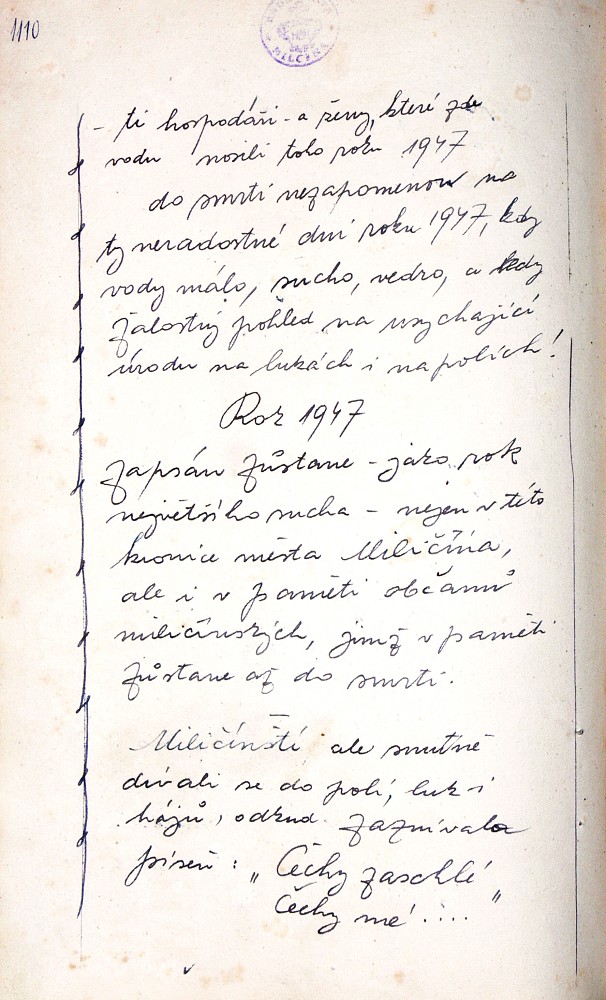 1110
MILČÍNA
- ti hospodáři - a ženy, které zde
vodu nosili toho roku 1947
do smrti nezapomenou na
ty neradostné dni roku 1947, kdy
vody málo, sucho, vedro, a kdy
žalostný pohled na usychající
úrodu na lukách i na polích!
Rok 1947
zapsán zůstane - jako rok
největšího sucha - nejen v této
kronice města Miličína,
ale i v paměti občanů
miličínských, jimž v paměti
zůstane až do smrti.
Miličínští ale smutně
dívali se do polí, luk i
hájů, odkud zaznívala
píseň: „Čechy zaschlé
Čechy mé....."